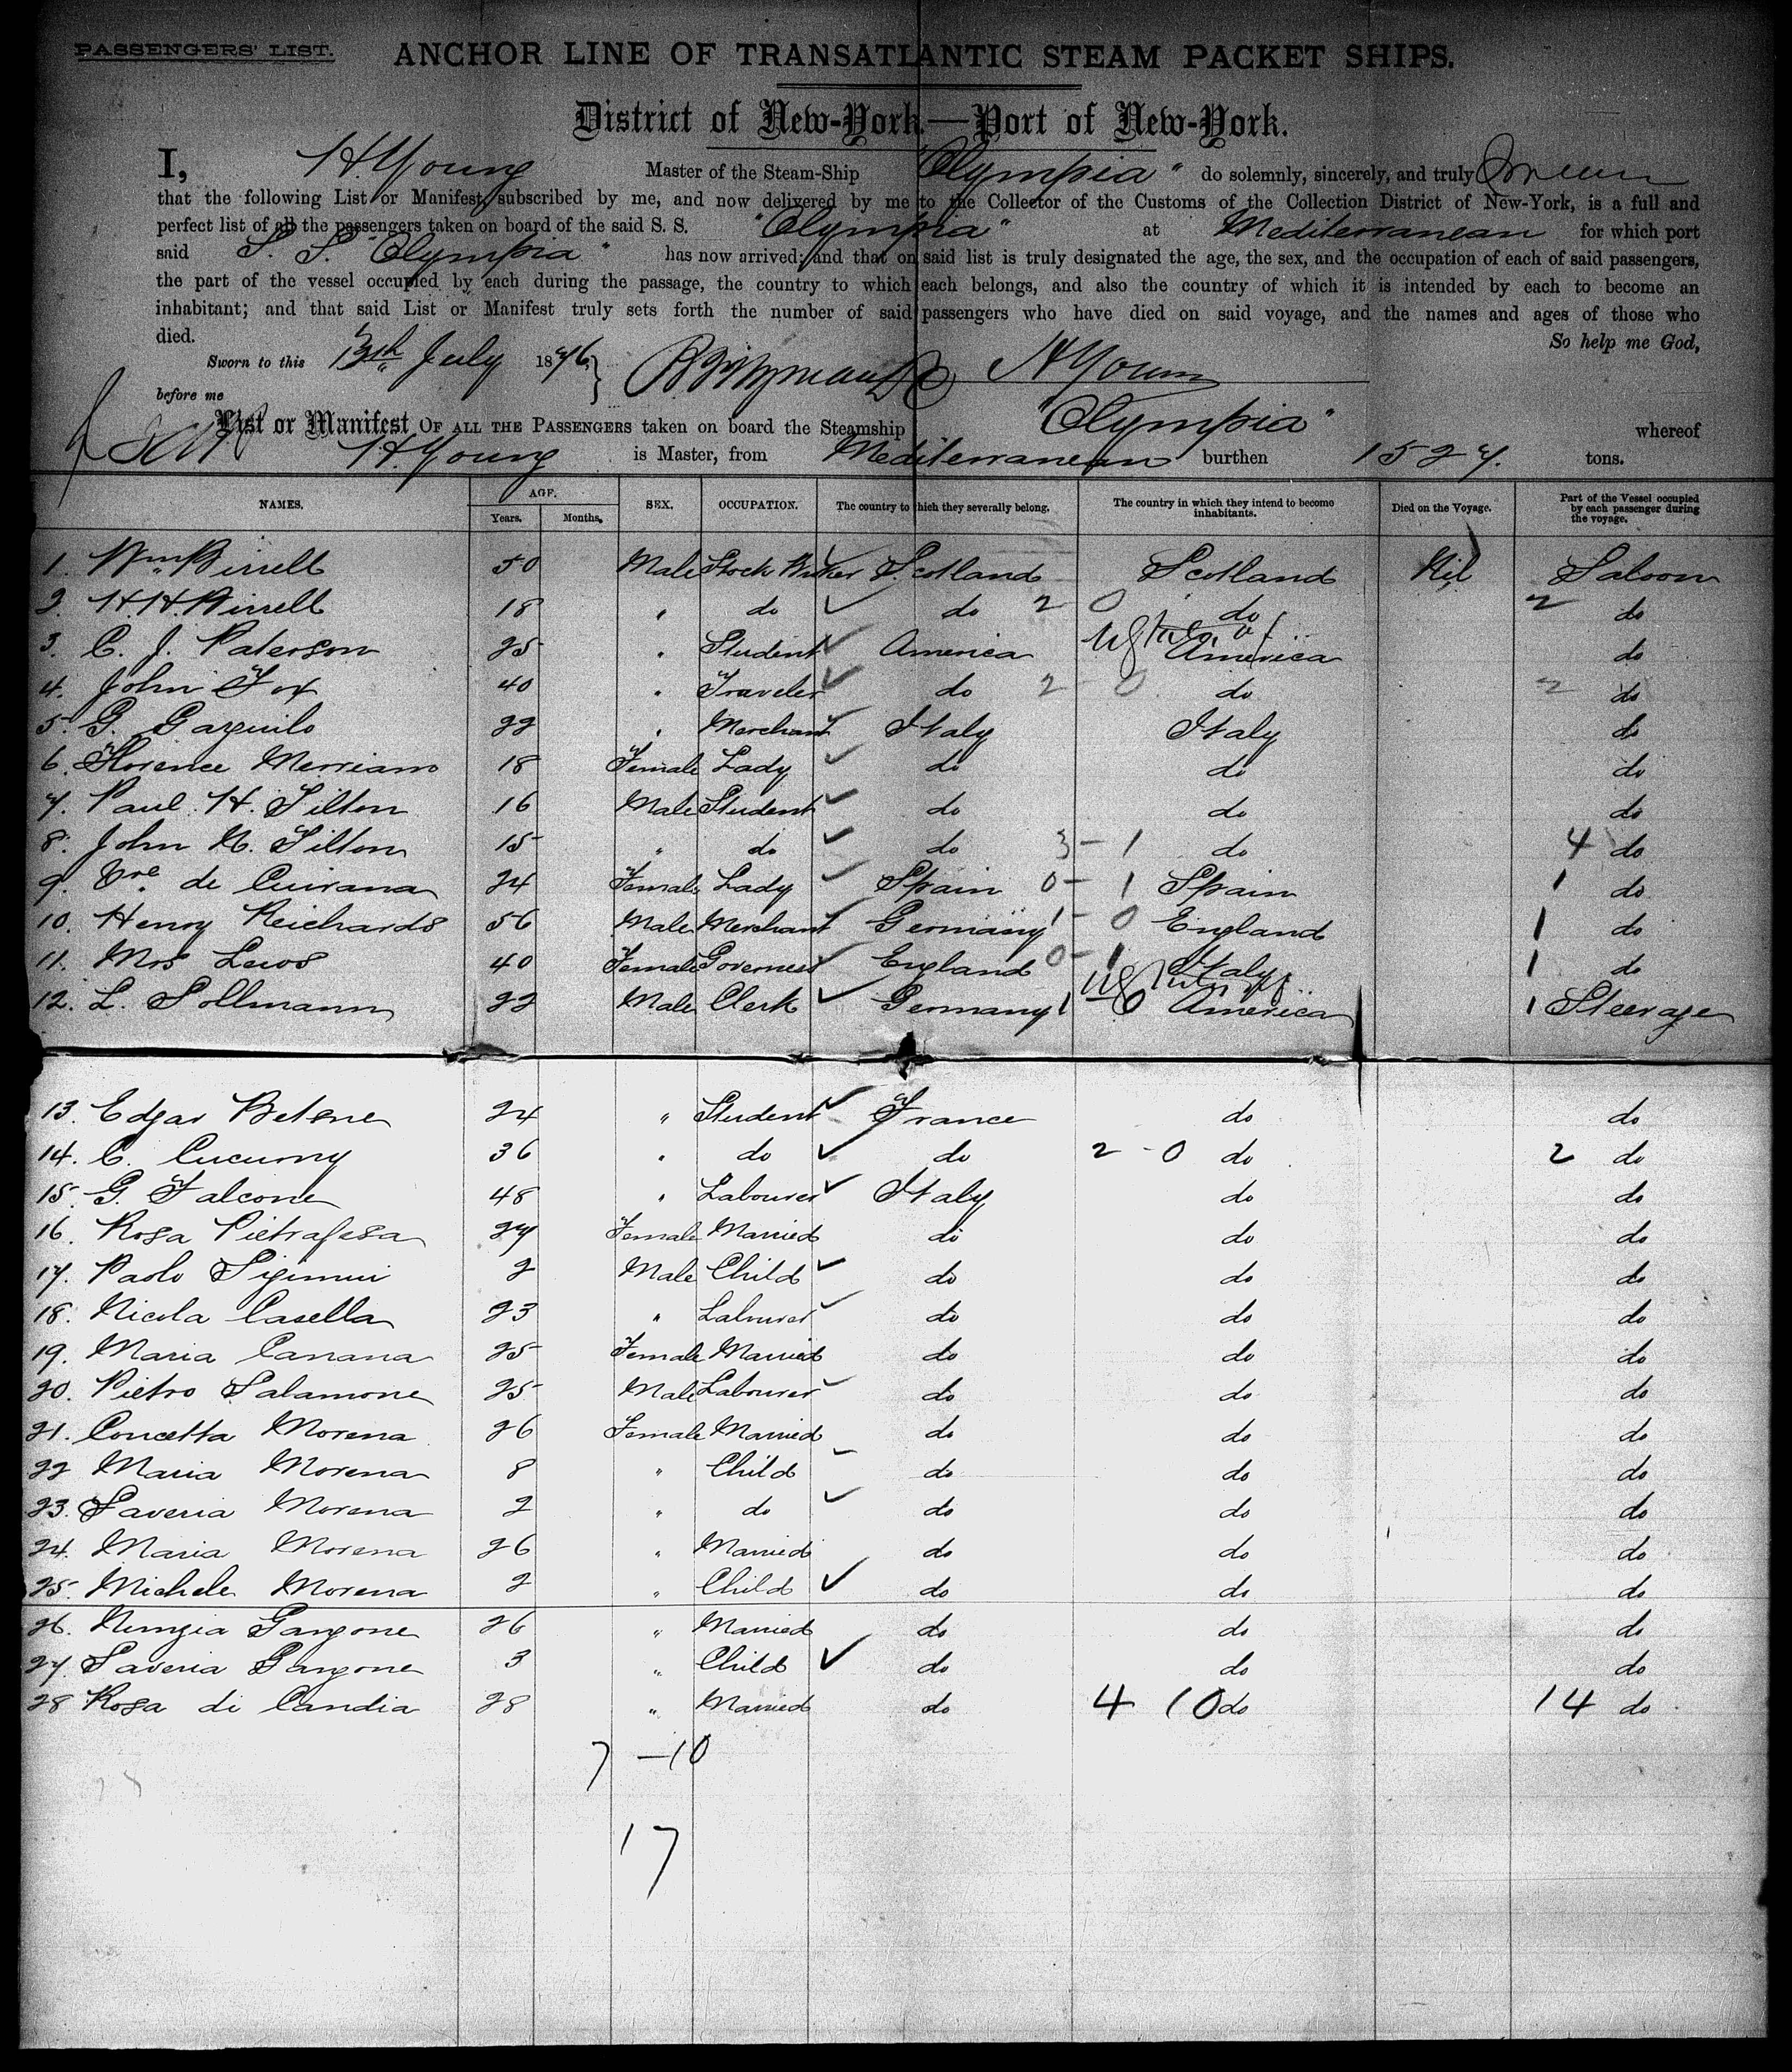 PASSENGERS' LIST. ANCHOR LINE OF TRANSATLANTIC STEAM PACKET SHIPS.
District of New-York.—Port of New-York.
I, H. Young Master of the Steam-Ship "Olympia" do solemnly, sincerely, and truly
that the following List or Manifest, subscribed by me, and now delivered by me to the Collector of the Customs of the Collection District of New-York, is a full and
perfect list of all the passengers taken on board of the said S. S. "Olympia" at Mediterranean for which port
said S. S. "Olympia" has now arrived; and that on said list is truly designated the age, the sex, and the occupation of each of said passengers,
the part of the vessel occupied by each during the passage, the country to which each belongs, and also the country of which it is intended by each to become an
inhabitant; and that said List or Manifest truly sets forth the number of said passengers who have died on said voyage, and the names and ages of those who
died. So help me God,
Sworn to this 13th July 1876 H Young
before me
List or Manifest OF ALL THE PASSENGERS taken on board the Steamship "Olympia" whereof
H. Young is Master, from Mediterranean burthen 1527. tons.
NAMES. AGE. Years. Months. SEX. OCCUPATION. The country to which they severally belong. The country in which they intend to become inhabitants. Died on the Voyage. Part of the Vessel occupied by each passenger during the voyage.
1. Wm Birrell 50 Male Stock Broker Scotland Scotland Nil Saloon
2. H. H. Birrell 18 " do do 2 0 do 2 do
3. C. J. Paterson 25 " Student America America do
4. John Fox 40 " Traveler do 2 0 do 2 do
5. G. Garguilo 22 " Merchant Italy Italy do
6. Florence Merriam 18 Female Lady do do do
7. Paul H. Tilton 16 Male Student do do do
8. John N. Tilton 15 " do do 3 - 1 do 4 do
9. de Cuirana 24 Female Lady Spain 0 - 1 Spain 1 do
10. Henry Reichards 56 Male Merchant Germany 1 - 0 England 1 do
11. Mrs Lewos 40 Female Governess England 0 - 1 Italy 1 do
12. L. Sollmann 22 Male Clerk Germany 1 0 America 1 Steerage
13. Edgar Betene 24 " Student France do do
14. C. Cucurny 36 " do do 2 - 0 do 2 do
15. G. Falcone 48 " Labourer Italy do do
16. Rosa Pietrafesa 27 Female Married do do do
17. Paolo 2 Male Child do do do
18. Nicola Casella 23 " Labourer do do do
19. Maria Canana 25 Female Married do do do
20. Pietro Salamone 25 Male Labourer do do do
21. Concetta Morena 26 Female Married do do do
22 Maria Morena 8 " Child do do do
23. Saveria Morena 2 " do do do do
24. Maria Morena 26 " Married do do do
25. Michele Morena 2 " Child do do do
26. Nunzia Gangone 26 " Married do do do
27 Saveria Gangone 3 " Child do do do
28 Rosa di Candia 28 " Married do 4 10 do 14 do
7 - 10
17